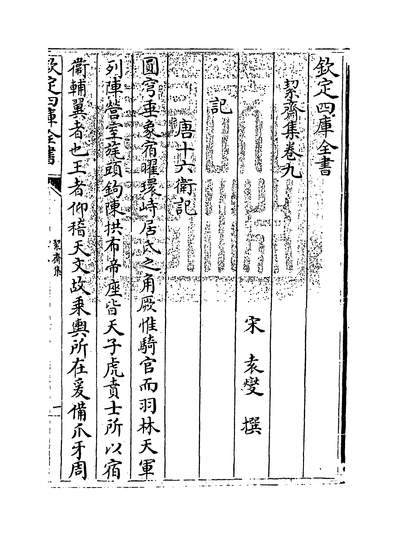 欽定四庫全書
絜齋集卷九
宋 袁燮 撰
記
唐十六衛記
圓穹垂象有曜環峙居氐之角厥惟騎官而羽林天軍
列陣營室旄頭鉤陳拱布帝座皆天子虎賁士所以宿
衛輔翼者也王者仰稽天文故乗輿所在爰備爪牙周
欽定四庫全書
絜齋集
一